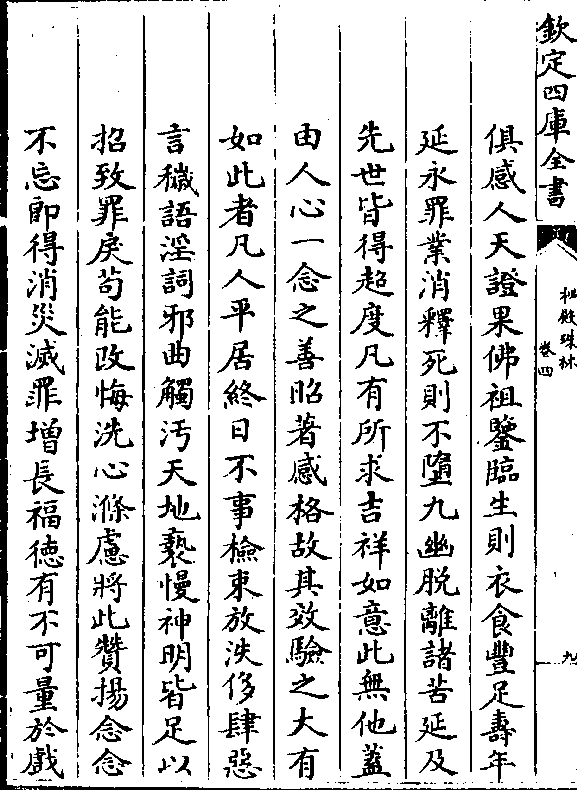 欽定四庫全書
秘殿珠林
卷四
九
俱感人天證果佛祖鑒臨生則衣食豐足壽年
延永罪業消釋死則不墮九幽脱離諸苦延及
先世皆得超度凡有所求吉祥如意此無他蓋
由人心一念之善昭著感格故其效驗之大有
如此者凡人平居終日不事檢束放泆侈肆惡
言穢語淫詞邪曲觸汚天地褻慢神明皆足以
招致罪戾苟能改悔洗心滌慮將此贊揚念念
不忘即得消災滅罪增長福徳有不可量於戲